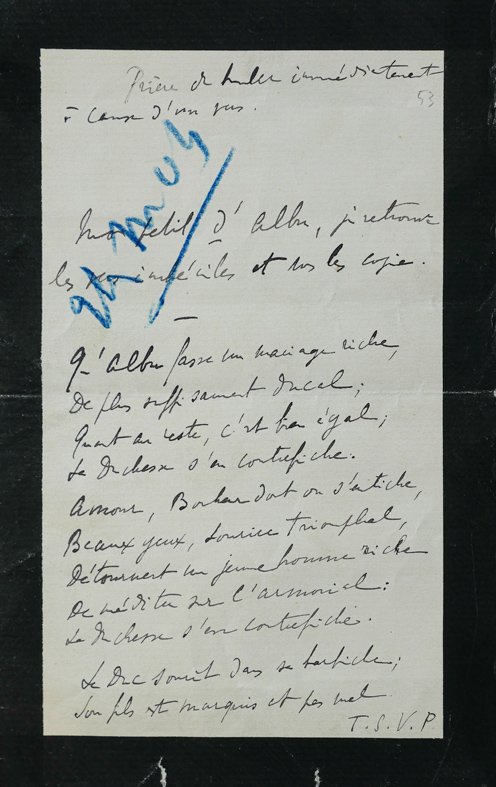 Prière de brûler immédiatement
à cause d'un pas.
53
Mon petit d'Albu, je retrouve
les vers imbéciles et vous les copie.
Qu'Albu fasse un mariage riche,
De plus suffisamment ducal ;
Quant au reste, c'est bien égal ;
La Duchesse s'en contrefiche.
Amour, Bonheur dont on s'entiche,
Beaux yeux, sourire triomphal,
Détournent un jeune homme riche
De méditer sur l'armorial :
La Duchesse s'en contrefiche.
Le Duc sourit dans sa barbiche ;
Son fils est marquis et pas mal
T.S.V.P.